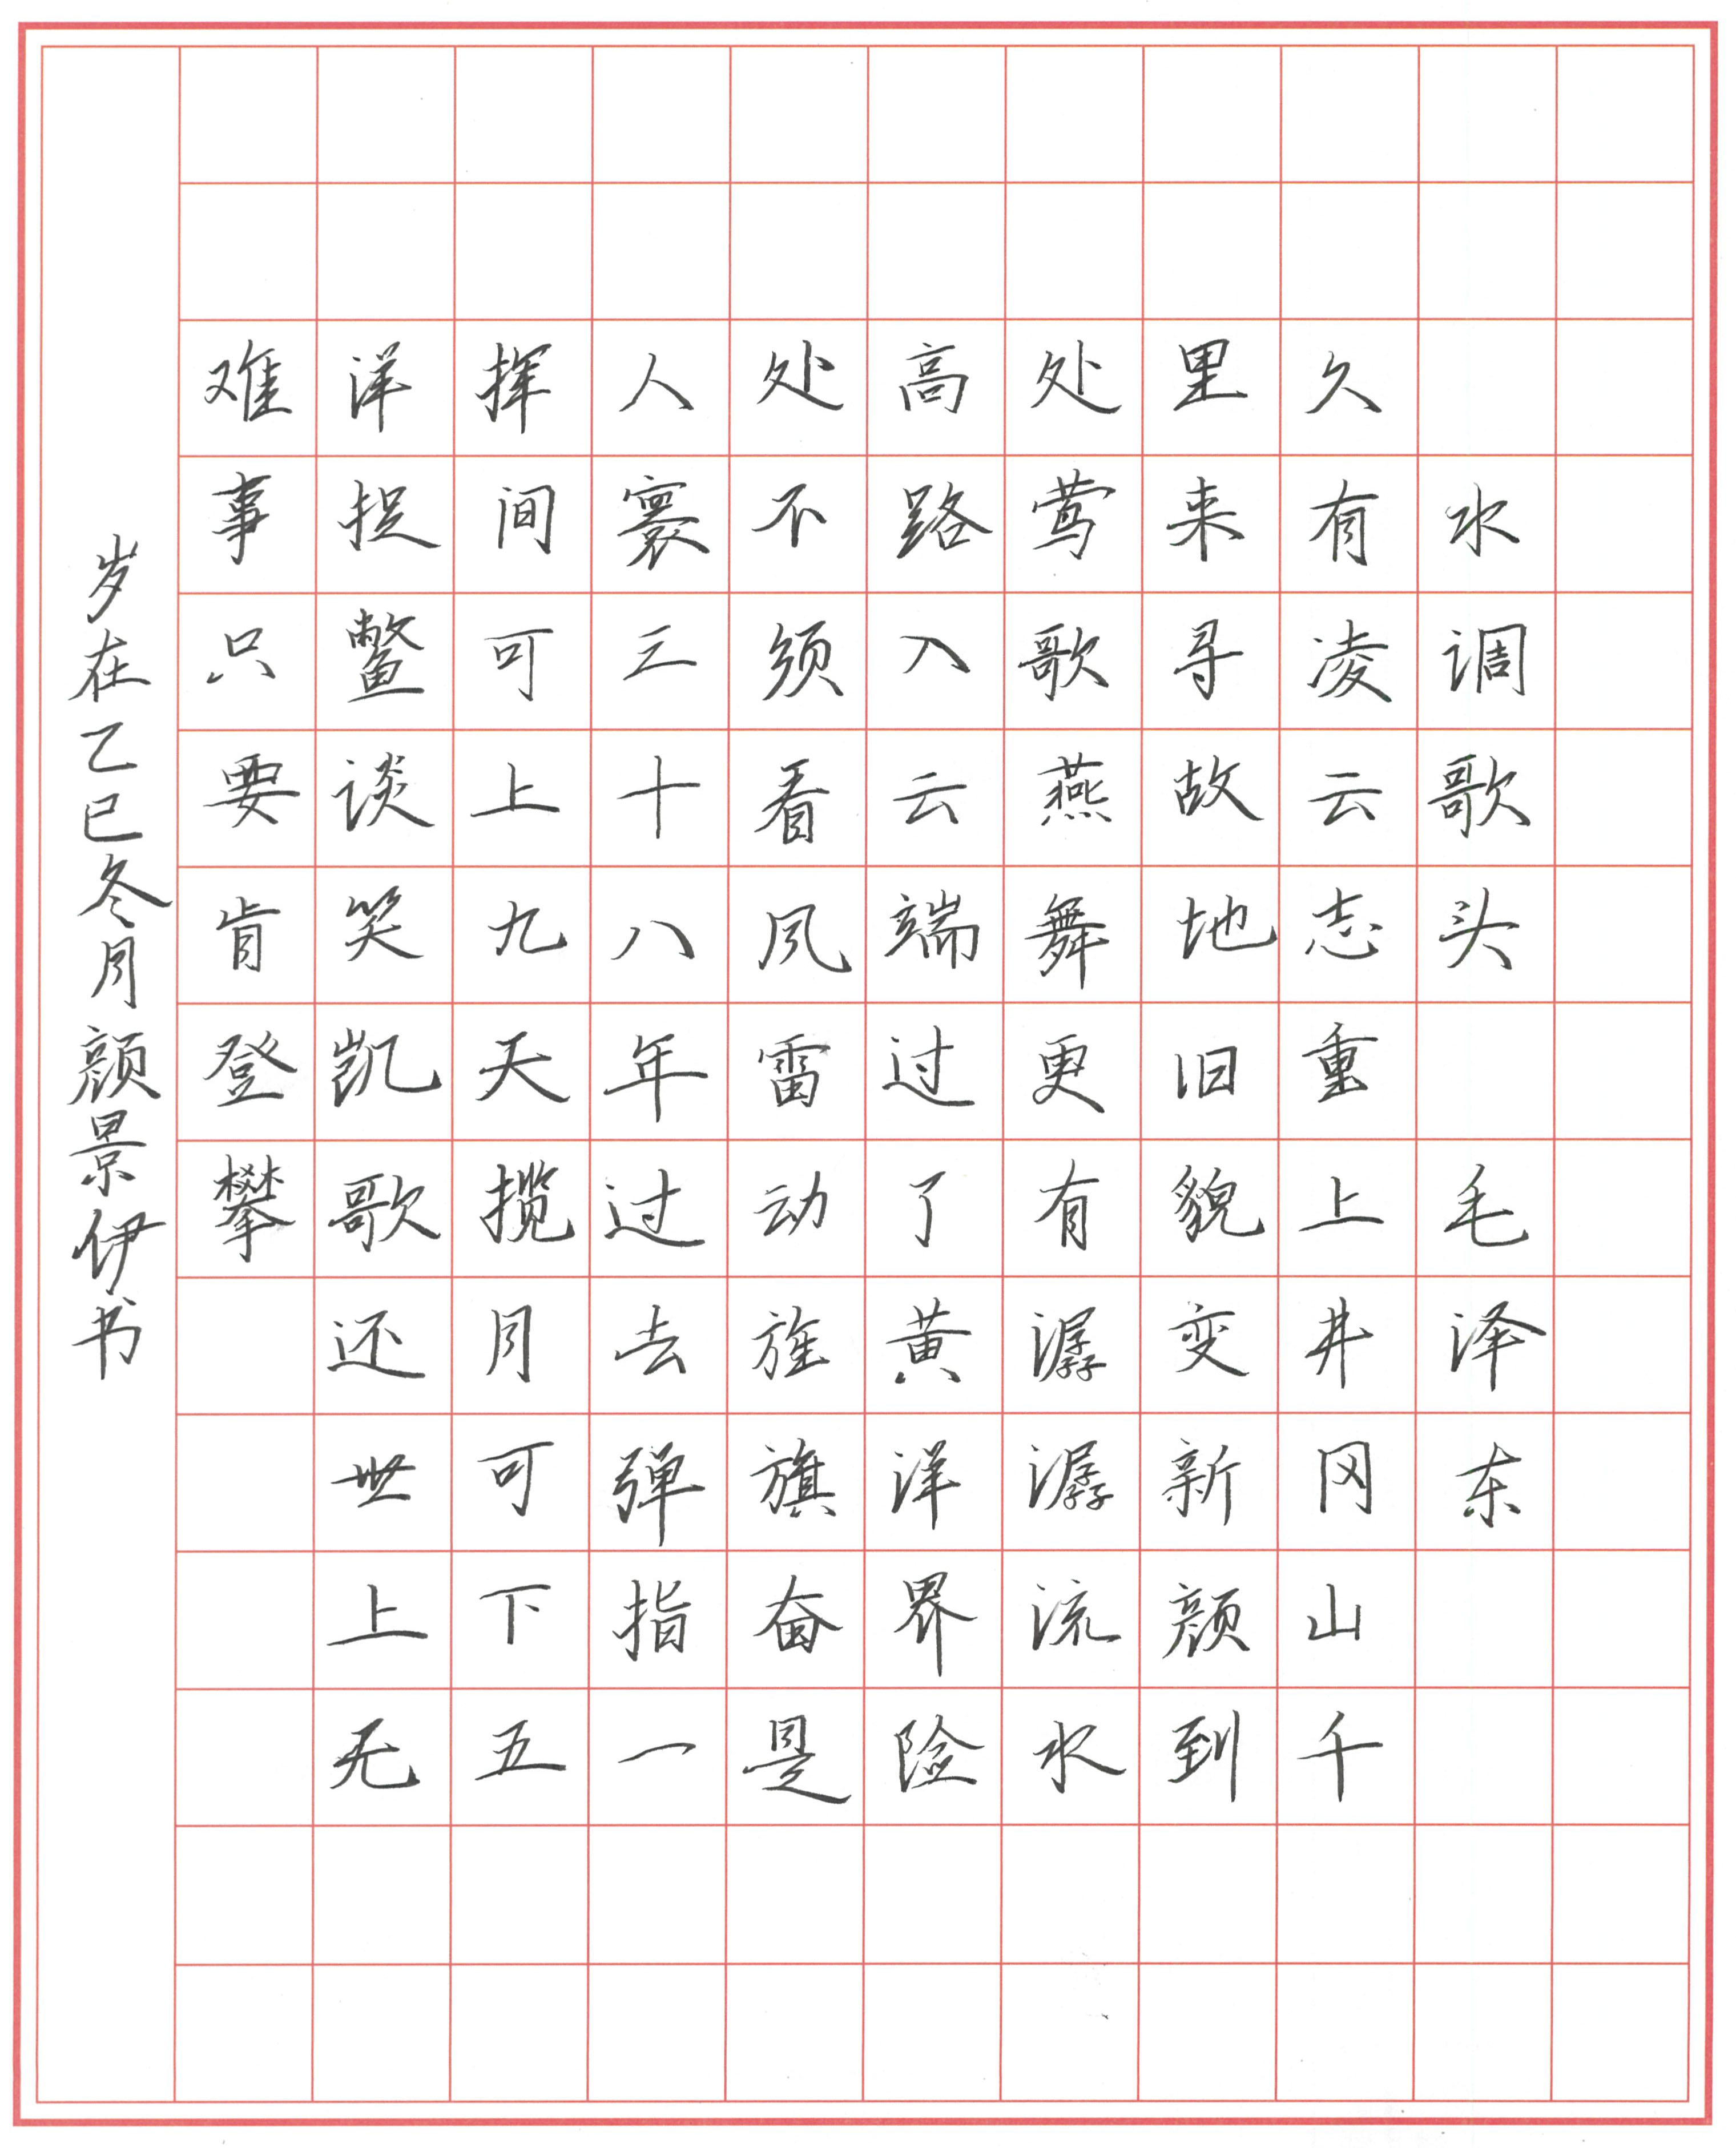 水调歌头 毛泽东
久有凌云志重上井冈山千
里来寻故地旧貌变新颜到
处莺歌燕舞更有潺潺流水
高路入云端过了黄洋界险
处不须看风雷动旌旗奋是
人寰三十八年过去弹指一
挥间可上九天揽月可下五
洋捉鳖谈笑凯歌还世上无
难事只要肯登攀
岁在乙巳冬月颜景伊书